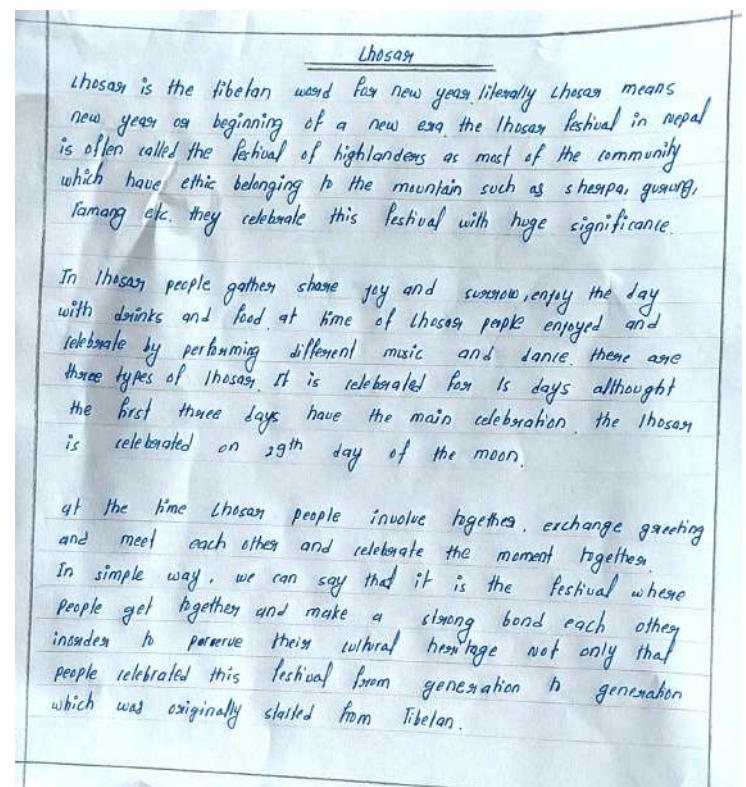 Lhosar
Lhosar is the tibetan word for new year, literally Lhosar means
new year or beginning of a new era. the lhosar festival in Nepal
is often called the festival of highlanders as most of the community
which have ethic belonging to the mountain such as sherpa, gurung,
Tamang etc. they celebrate this festival with huge significance.
In lhosar people gather share joy and surrow, enjoy the day
with drinks and food. at time of Lhosar people enjoyed and
celebrate by performing different music and dance. there are
three types of lhosar. It is celebrated for 15 days althought
the first three days have the main celebration. the lhosar
is celebrated on 29th day of the moon.
at the time Lhosar people involve together, exchange greeting
and meet each other and celebrate the moment together.
In simple way, we can say that it is the festival where
people get together and make a strong bond each other
inorder to perserve their cultural heritage not only that
people celebrated this festival from generation to generation
which was originally started from Tibetan.